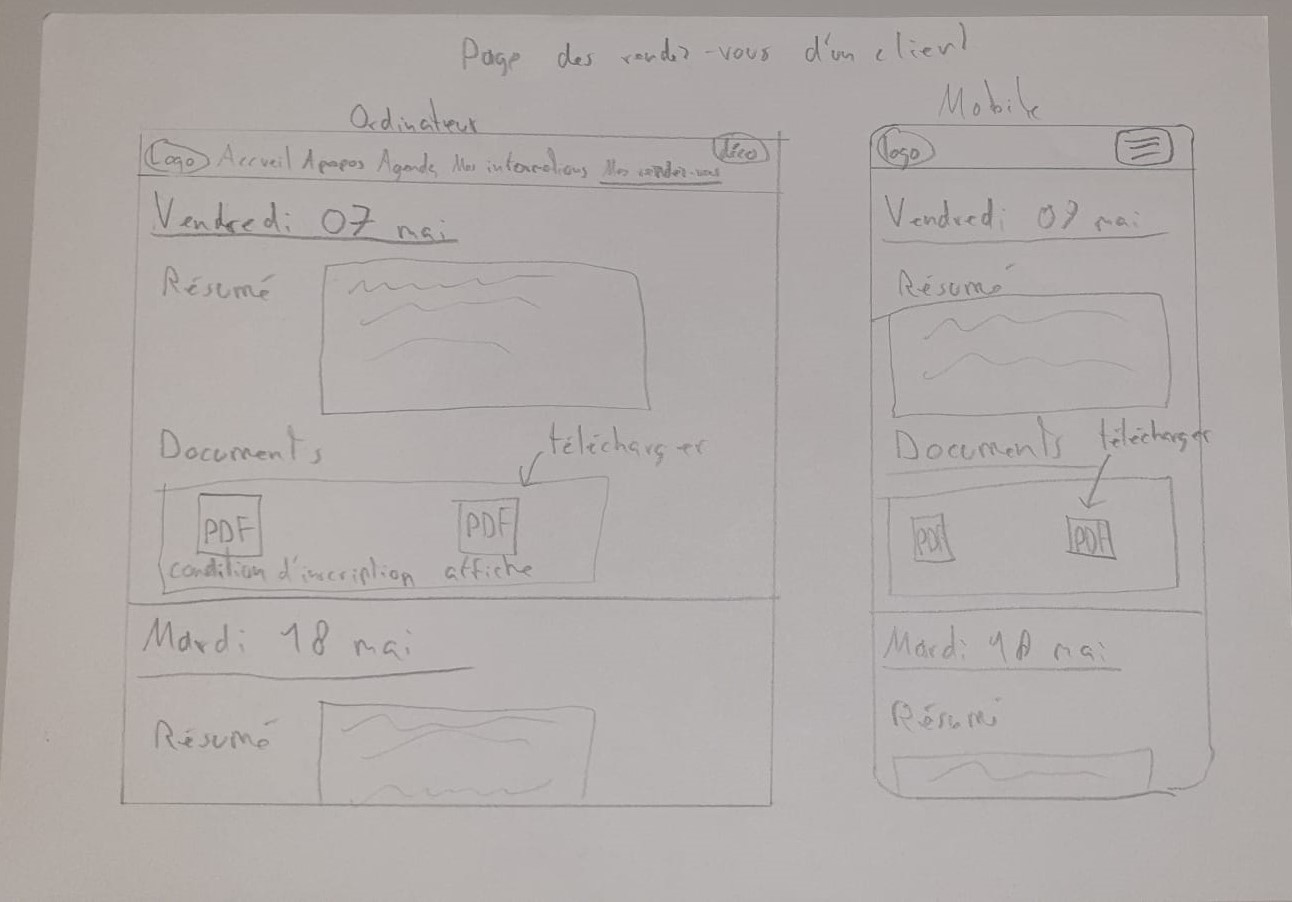 Page des rendez-vous d'un client
Ordinateur
Logo Accueil Apopos Agenda Mes interventions Mes rendez-vous déco
Vendredi 07 mai
Résumé
Documents
télécharger
PDF PDF
condition d'inscription affiche
Mardi 18 mai
Résumé
Mobile
logo
Vendredi 07 mai
Résumé
Documents
télécharger
PDF PDF
Mardi 18 mai
Résumé